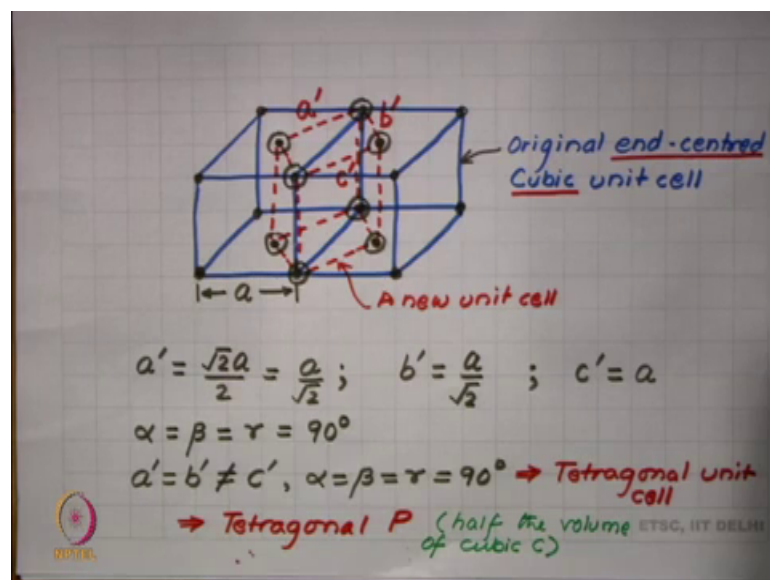 a' b'
Original end-centred
Cubic unit cell
c'
a
A new unit cell
a' = √2a/2 = a/√2 ; b' = a/√2 ; c' = a
α = β = γ = 90°
a' = b' ≠ c', α = β = γ = 90° ⇒ Tetragonal unit
cell
⇒ Tetragonal P (half the volume
of cubic C)
ETSC, IIT DELHI
NPTEL